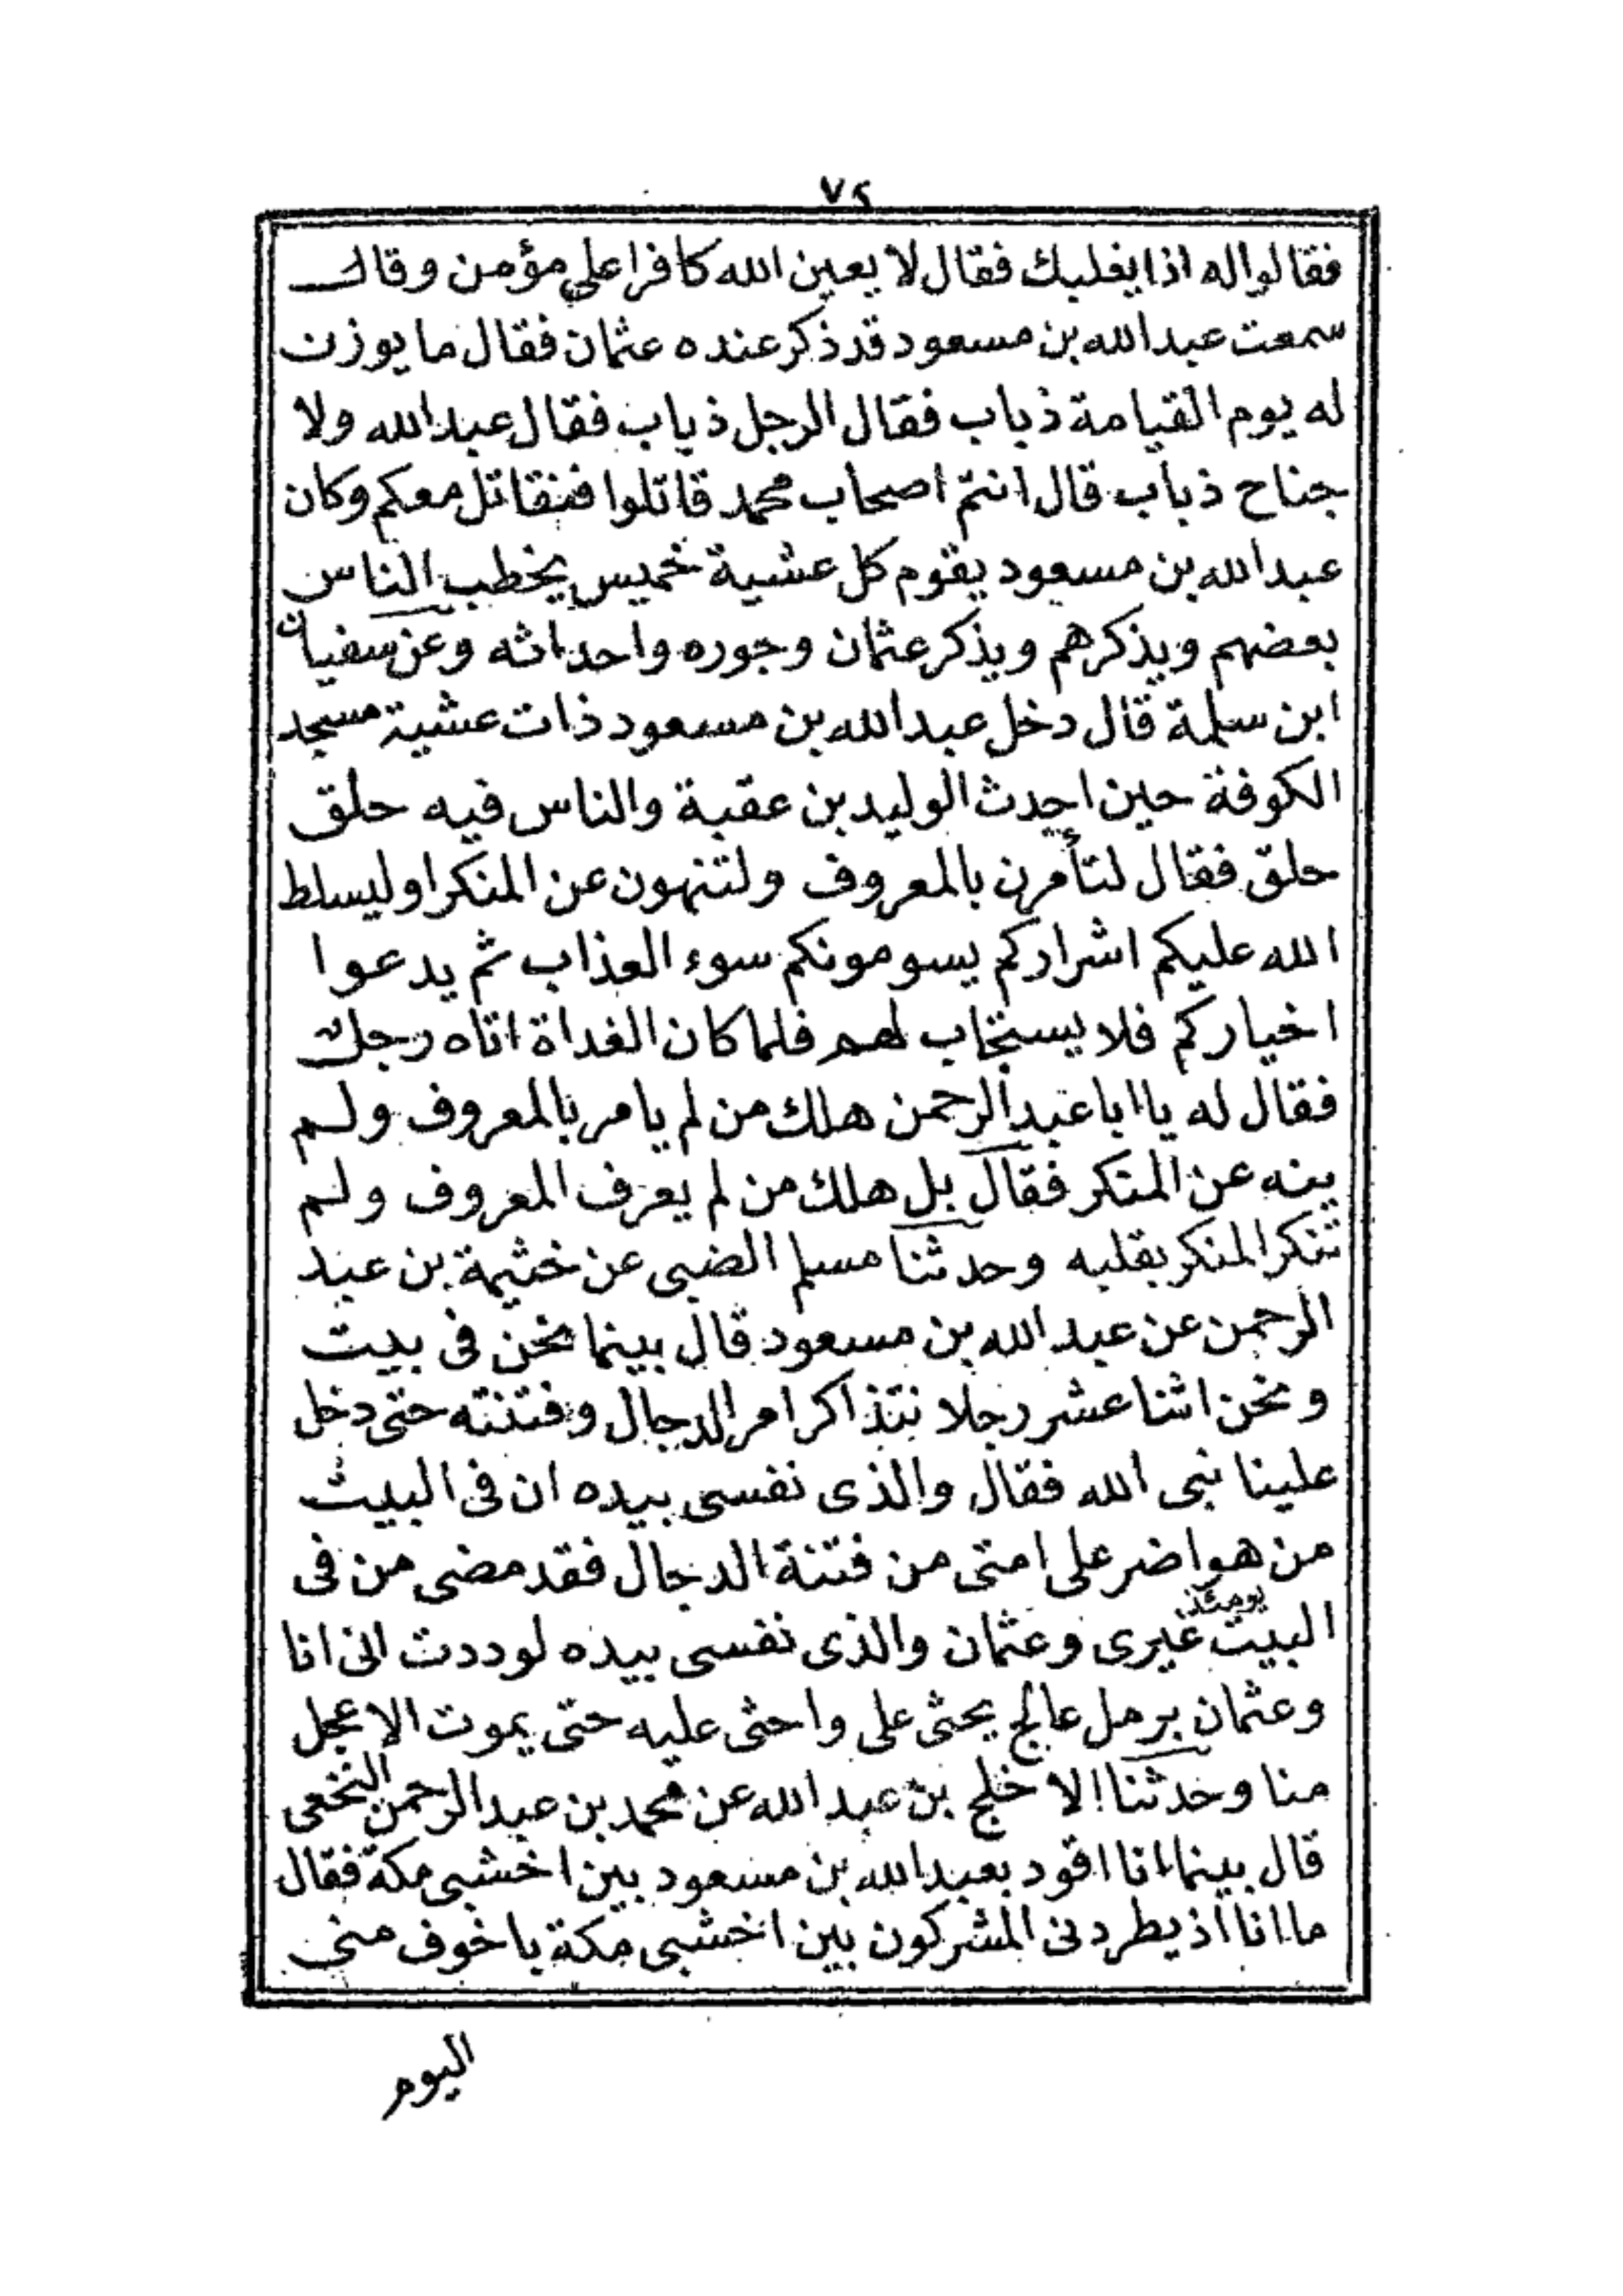 ٧٢
فقالوا له اذا يغلبك فقال لا يعين الله كافرا على مؤمن وقال
سمعت عبد الله بن مسعود قد ذكر عنده عثمان فقال ما يوزن
له يوم القيامة ذباب فقال الرجل ذباب فقال عبد الله ولا
جناح ذباب قال انتم اصحاب محمد قاتلوا فنقاتل معكم وكان
عبد الله بن مسعود يقوم كل عشية خميس يخطب الناس
بعضهم ويذكرهم ويذكر عثمان وجوره واحداثه وعن سفيان
ابن سلمة قال دخل عبد الله بن مسعود ذات عشية مسجد
الكوفة حين احدث الوليد بن عقبة والناس فيه حلق
حلق فقال لتأمرن بالمعروف ولتنهون عن المنكر او ليسلط
الله عليكم اشراركم يسومونكم سوء العذاب ثم يدعوا
اخياركم فلا يستجاب لهم فلما كان الغداة اتاه رجل
فقال له يا ابا عبد الرحمن هلك من لم يامر بالمعروف ولم
ينه عن المنكر فقال بل هلك من لم يعرف المعروف ولم
تنكر المنكر بقلبه وحدثنا مسلم الضبى عن خثيمة بن عبد
الرحمن عن عبد الله بن مسعود قال بينما نحن فى بيت
ونحن اثنا عشر رجلا نتذاكر امر الدجال وفتنته حتى دخل
علينا نبى الله فقال والذى نفسى بيده ان فى البيت
من هو اضر على امتى من فتنة الدجال فقد مضى من فى
البيت يومئذ غيرى وعثمان والذى نفسى بيده لوددت انى انا
وعثمان برمل عالج يحثى على واحثى عليه حتى يموت الاعجل
منا وحدثنا الاخلج بن عبد الله عن محمد بن عبد الرحمن النخعى
قال بينما انا اقود بعبد الله بن مسعود بين اخشبى مكة فقال
ما انا اذ يطردنى المشركون بين اخشبى مكة باخوف منى
اليوم